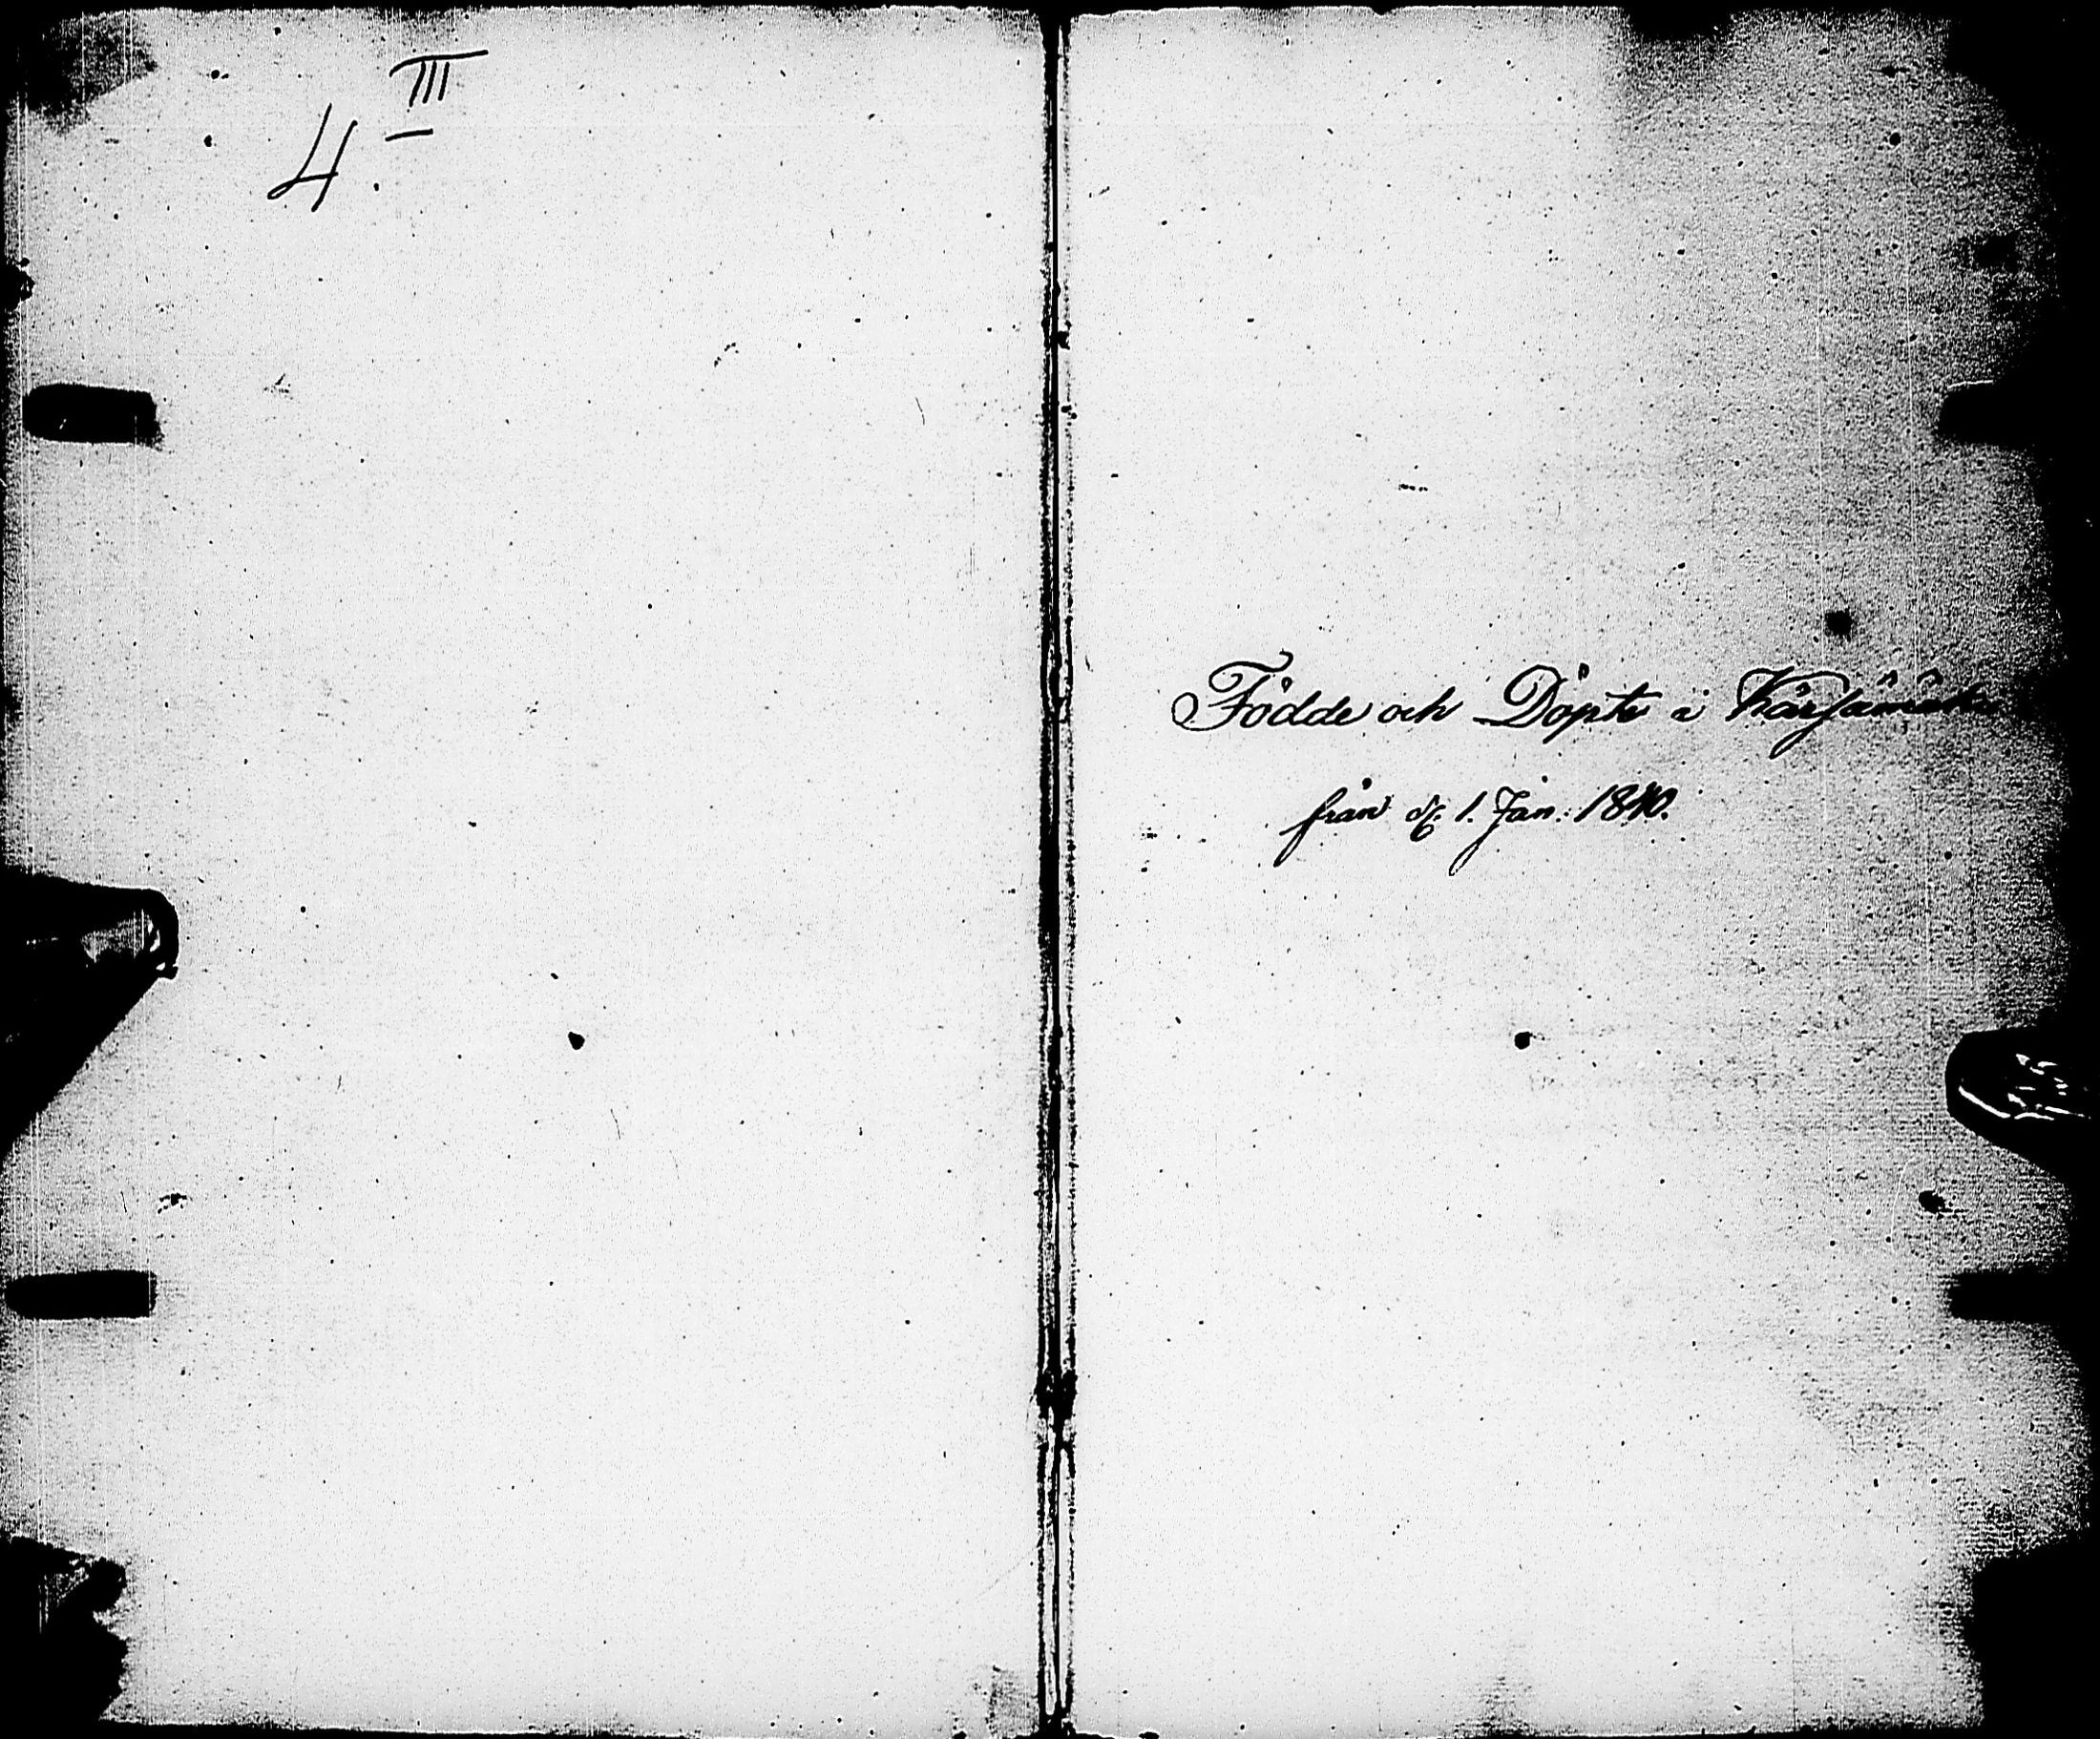 III
4.
Födde och Döpte i Kärsämäki
från d. 1. Jan: 1840.